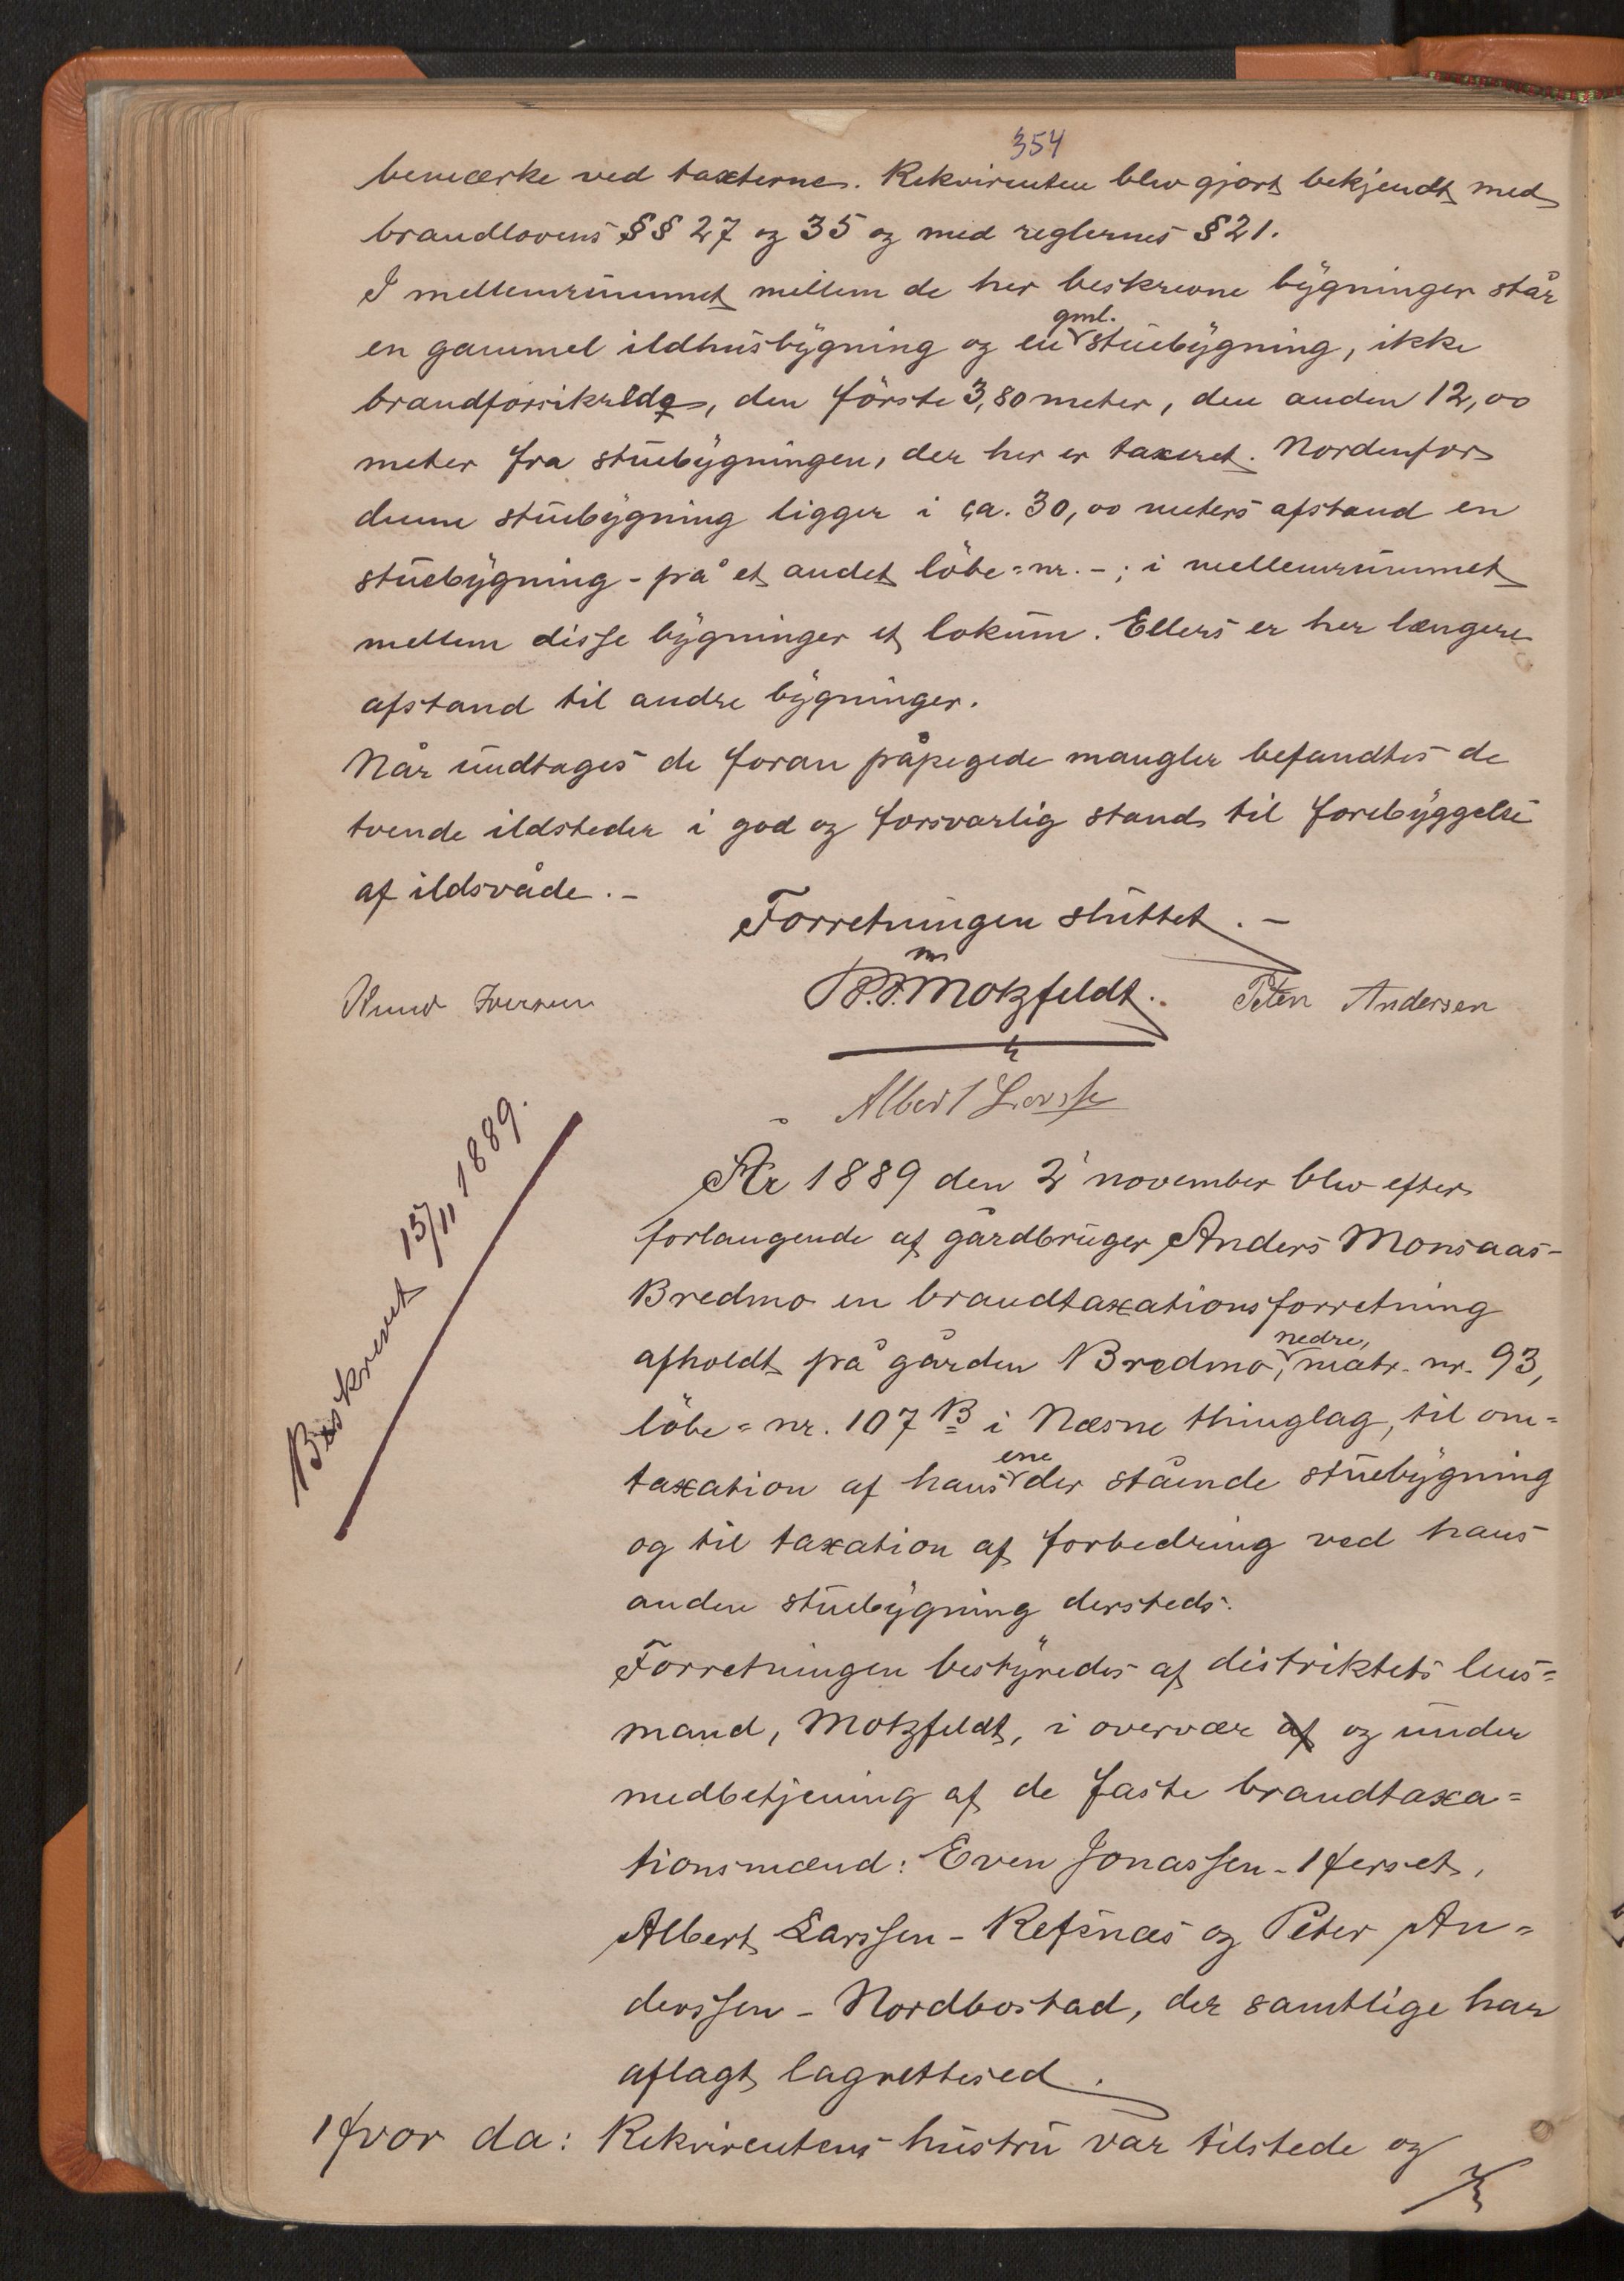 354
bemærke ved taxterne. Rekvirenten blev gjort bekjendt med
brandlovens §§ 27 og 35 og med reglernes § 21.
I mellemrummet mellem de her beskrevne bygninger står
en gammel ildhusbygning og en gml. stuebygning, ikke
brandforsikrede, den förste 3,80 meter, den anden 12,00
meter fra stuebygningen, der her er taxeret. Nordenfor
denne stuebygning ligger i ca. 30,00 meters afstand en
stuebygning - på et andet löbe=nr. -; i mellemrummet
mellem disse bygninger et lokum. Ellers er her længere
afstand til andre bygninger.
Når undtages de foran påpegede mangler befandtes de
tvende ildsteder i god og forsvarlig stand til forebyggelse
af ildsvåde. -
Forretningen sluttet. -
Knud Iversen P.F. Motzfeldt. Peter Andersen
Albert Larsse
Beskrevet 15/11 1889.
År 1889 den 2' november blev efter
forlangende af gårdbruger Anders Monsaas-
Bredmo en brandtaxationsforretning
afholdt på gården Bredmo, nedre, matr. nr. 93,
löbe=nr. 107 B i Næsne thinglag, til om=
taxation af hans ene der stående stuebygning
og til taxation af forbedring ved hans
anden stuebygning dersteds.
Forretningen bestyredes af distriktets lens=
mand, Motzfeldt, i overvær af og under
medbetjening af de faste brandtaxa=
tionsmænd: Even Jonassen - Hferset,
Albert Larssen - Refsnæs og Peter An=
derssen - Nordbostad, der samtlige har
aflagt lagrettesed.
Hvor da: Rekvirentens hustru var tilstede og